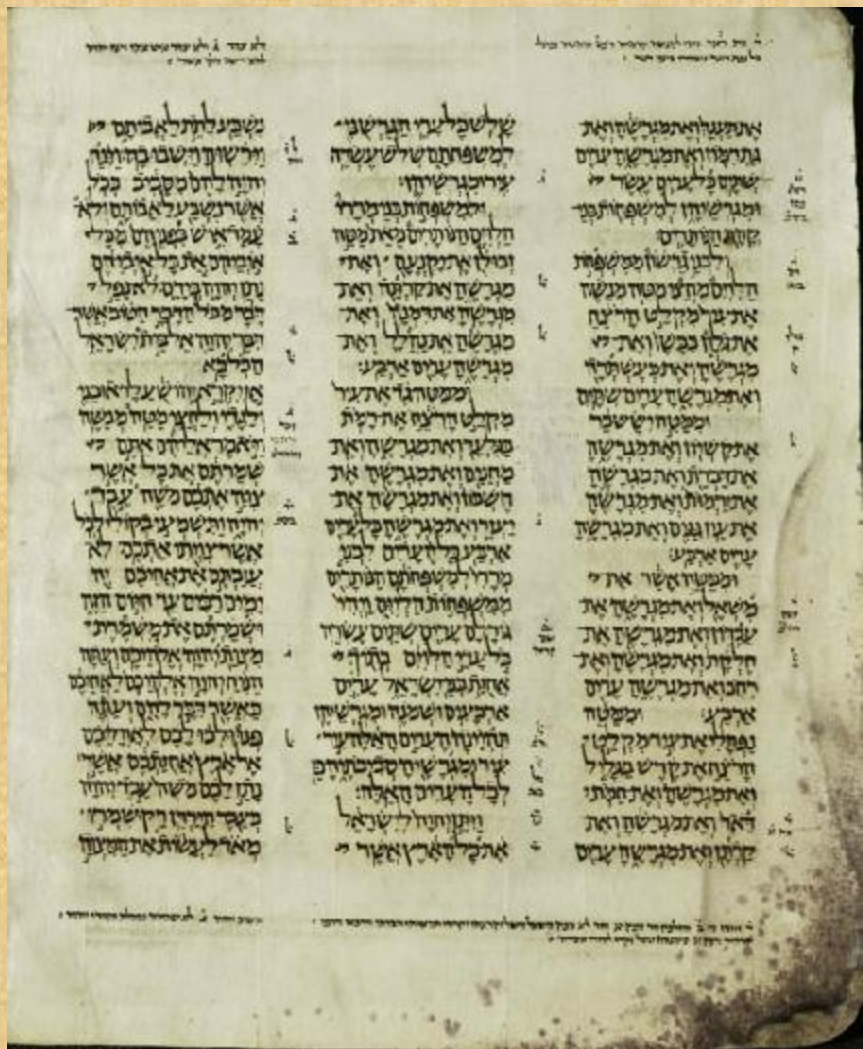 את תענך ואת מגרשה ואת
גת רמון ואת מגרשה ערים
שתים כל ערים עשר
ומגרשיהן למשפחות בני
קהת הנותרים
ולבני גרשון ממשפחת
הלוים מחצי מטה מנשה
את עיר מקלט הרצח
את גלון בבשן ואת
מגרשה ואת בעשתרה
ואת מגרשה ערים שתים
וממטה יששכר
את קשיון ואת מגרשה
את דברת ואת מגרשה
את ירמות ואת מגרשה
את עין גנים ואת מגרשה
ערים ארבע
וממטה אשר את
משאל ואת מגרשה את
עבדון ואת מגרשה את
חלקת ואת מגרשה ואת
רחב ואת מגרשה ערים
ארבע וממטה
נפתלי את עיר מקלט
הרצח את קדש בגליל
ואת מגרשה ואת חמת
דאר ואת מגרשה ואת
קרתן ואת מגרשה ערים
שלש כל ערי הגרשני
למשפחתם שלש עשרה
עיר ומגרשיהן
ולמשפחות בני מררי
הלוים הנותרים מאת מטה
זבולן את יקנעם ואת
מגרשה את קרתה ואת
מגרשה את דמנה ואת
מגרשה את נהלל ואת
מגרשה ערים ארבע
וממטה גד את עיר
מקלט הרצח את רמת
בגלעד ואת מגרשה ואת
מחנים ואת מגרשה את
חשבון ואת מגרשה את
יעזר ואת מגרשה כל ערים
ארבע כל הערים לבני
מררי למשפחתם הנותרים
ממשפחות הלוים ויהי
גורלם ערים שתים עשרה
כל ערי הלוים בתוך
אחזת בני ישראל ערים
ארבעים ושמנה ומגרשיהן
תהיינה הערים האלה עיר
עיר ומגרשיה סביבתיה כן
לכל הערים האלה
ויתן יהוה לישראל
את כל הארץ אשר
נשבע לתת לאבותם
וירשוה וישבו בה וינח
יהוה להם מסביב ככל
אשר נשבע לאבותם ולא
עמד איש בפניהם מכל
איביהם את כל איביהם
נתן יהוה בידם לא נפל
דבר מכל הדבר הטוב אשר
דבר יהוה אל בית ישראל
הכל בא
אז יקרא יהושע לראובני
ולגדי ולחצי מטה מנשה
ויאמר אליהם אתם
שמרתם את כל אשר
צוה אתכם משה עבד
יהוה ותשמעו בקולי לכל
אשר צויתי אתכם לא
עזבתם את אחיכם זה
ימים רבים עד היום הזה
ושמרתם את משמרת
מצות יהוה אלהיכם ועתה
הניח יהוה אלהיכם לאחיכם
כאשר דבר להם ועתה
פנו ולכו לכם לאהליכם
אל ארץ אחזתכם אשר
נתן לכם משה עבד יהוה
בעבר הירדן רק שמרו
מאד לעשות את המצוה